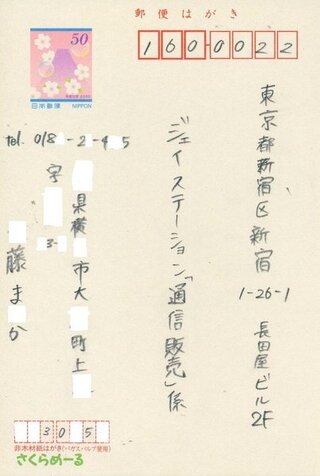 郵便はがき
50
日本郵便
NIPPON
160-0022
東京都新宿区新宿
1-26-1 長田屋ビル2F
ジェイステーション「通信販売」係
tel. 018 -2 -4 5
県横 市大 町上
字 3-
藤 ま か
305
非木材紙はがき(バガス・パルプ使用)
さくらめーる